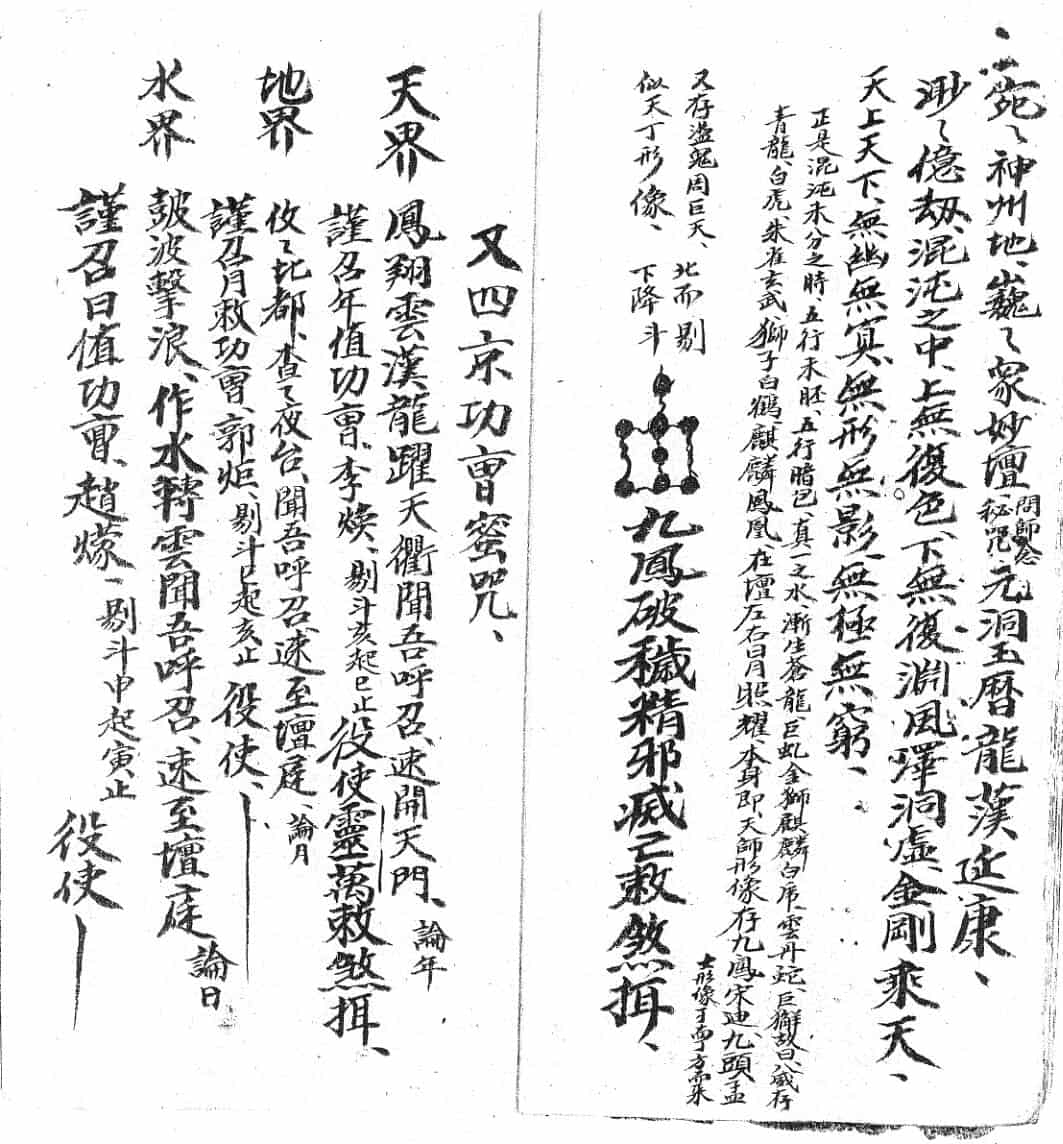 苑〻神州地、巍〻衆妙壇、問師念秘咒元洞玉曆龍漢延康、
渺〻億劫、混沌之中、上無復色、下無復淵風澤洞虛金剛乘天、
天上天下、無幽無冥、無形無影、無極無窮、
正是混沌未分之時、五行未胚、五行暗包、真一之水、漸生蒼龍、巨虬金獅麒麟白虎、雲丹蛇、巨獬故曰、八威存
青龍、白虎、朱雀玄武、獅子白鶴、麒麟鳳凰、在壇左右日月照耀、本身即、天師形像存九鳳宋迪、九頭孟
士形像于南方而來
又存盪鬼周巨天、北而剔
似天丁形像、下降斗
九鳳破穢精邪滅亡敕煞揖、
又四京功曹密咒、
天界 鳳翔雲漢、龍躍天衢聞吾呼召、速開天門、論年
謹召年值功曹、李煥、剔斗亥起巳止役使靈萬敕煞揖、
地界 攸〻北都、杳〻夜台、聞吾呼召速至壇庭、論月
謹召月敕功曹、郭炬、剔斗巳起亥止役使、
水界 鼓波擊浪、作水轉雲聞吾呼召、速至壇庭、論日
謹召日值功曹、趙爣、剔斗申起寅止役使